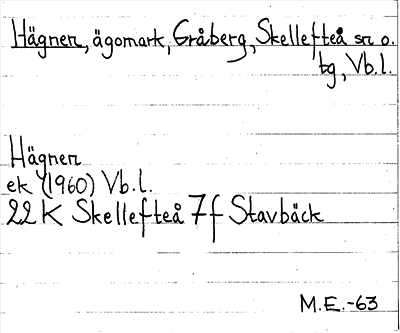 Hägnen, ägomark, Gråberg, Skellefteå sn o.
tg, Vb.l.
Hägnen
ek (1960) Vb.l.
22 K Skellefteå 7f Stavbäck
M.E.-63